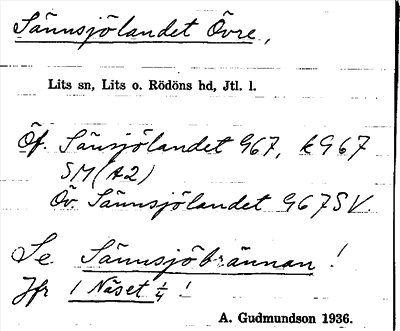 Sännsjölandet Övre,
Lits sn, Lits o. Rödöns hd, Jtl. l.
Öf. Sänsjölandet G67, kG67
SM (A2)
Öv. Sännsjölandet G67SV.
Se Sännsjöbrännan!
Jfr 1 Näset ¼!
A. Gudmundson 1936.